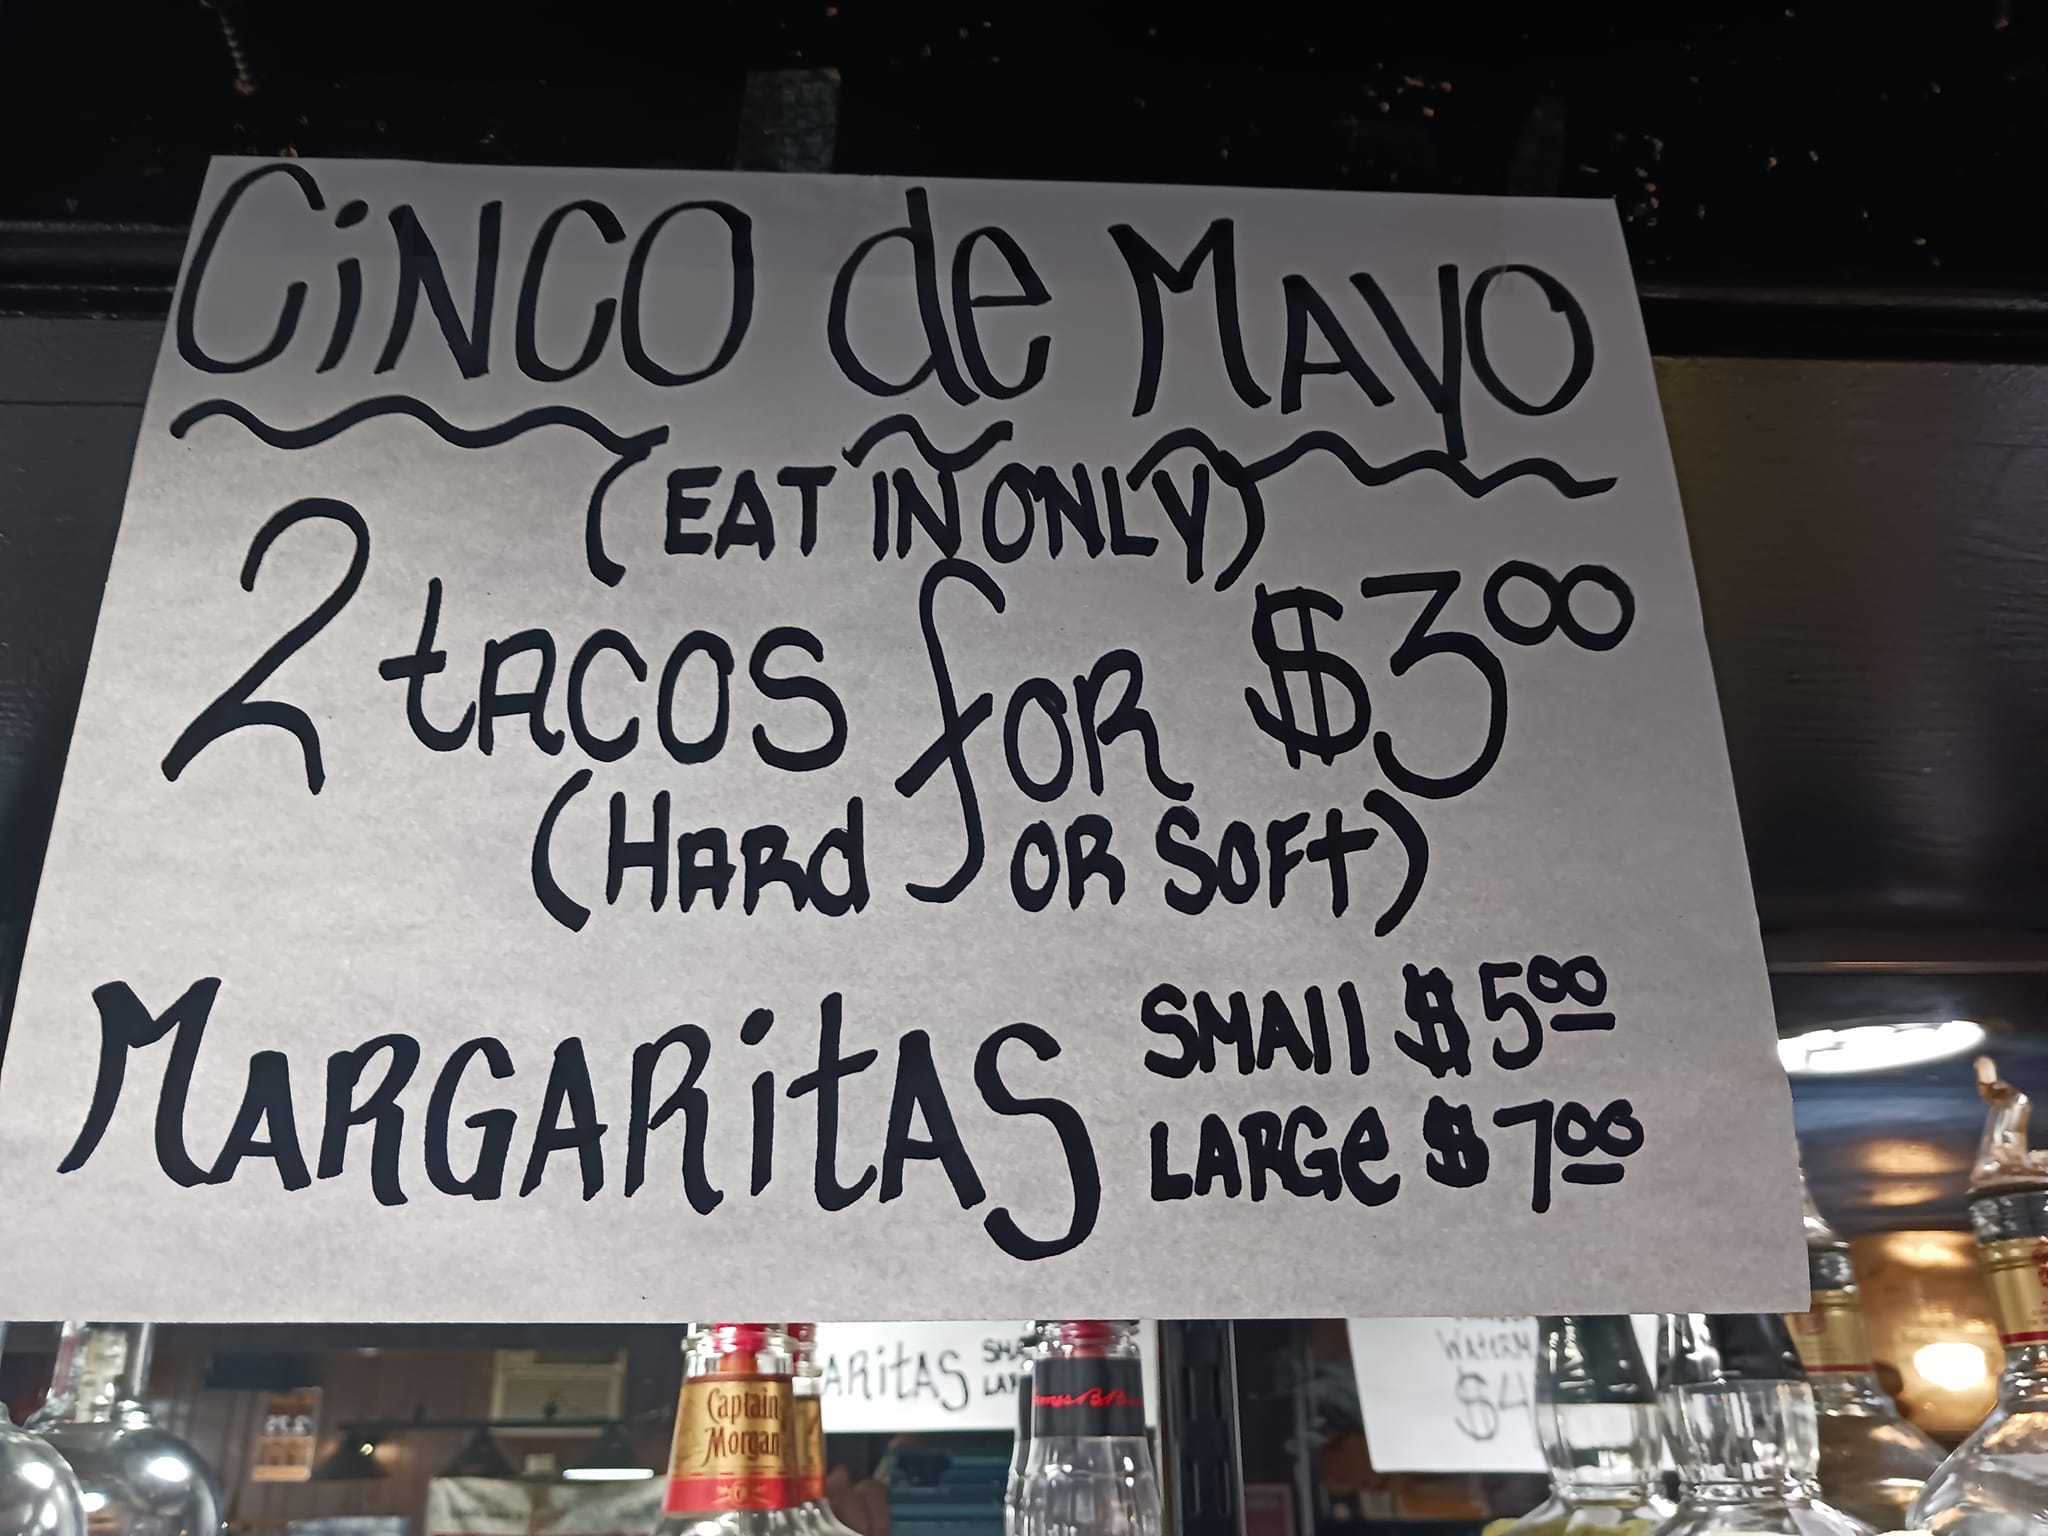 CINCO de MAYO
(EAT IN ONLY)
2 tACOS fOR $3.00
(HARd OR SOFt)
MARGARitAS
SMAll $5.00
LARGe $7.00
Captain
Morgan
ARitAS
$4